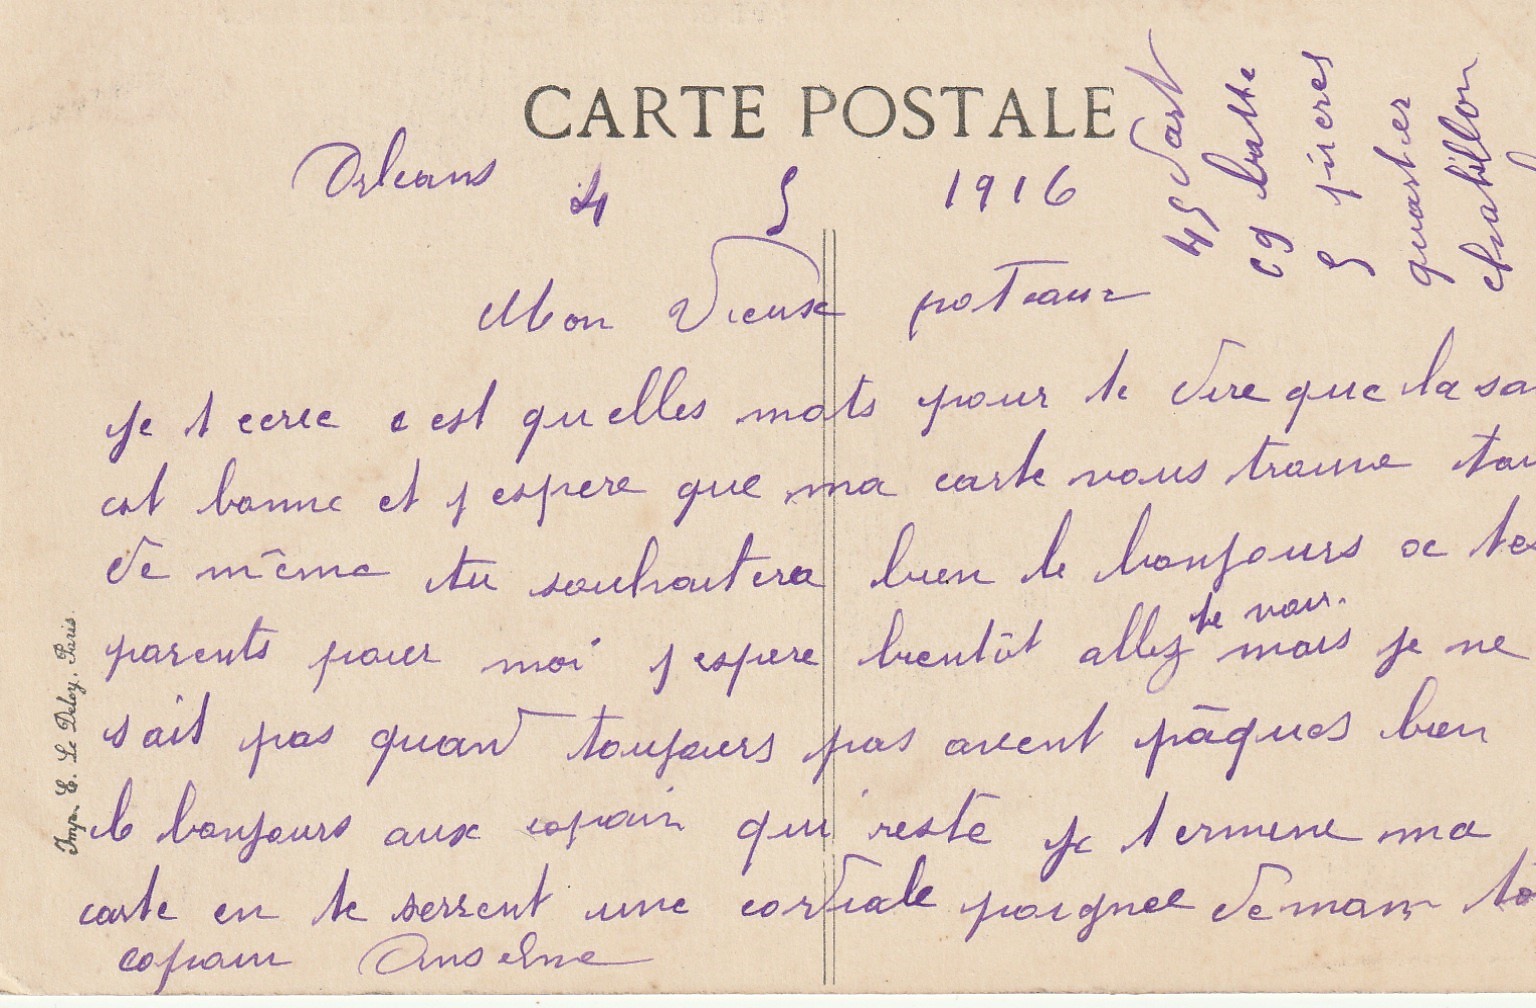 CARTE POSTALE
Orleans 4 5 1916
45 dart
batte
5 pieces
quartier
chatillon
Mon Vieux poteaux
je t ecrie c est quelles mots pour te dire que la sa
est bonne et j espere que ma carte vous trouve tou
de même tu souhaitera bien le bonjours a tes
parents pour moi j espere bientôt allez te voir. mais je ne
sait pas quand toujours pas avent pâques bien
le bonjours aux copain qui reste je termine ma
carte en te serrent une cordiale poignee de main to
copain Anselme
Imp. E. Le Deley, Paris.